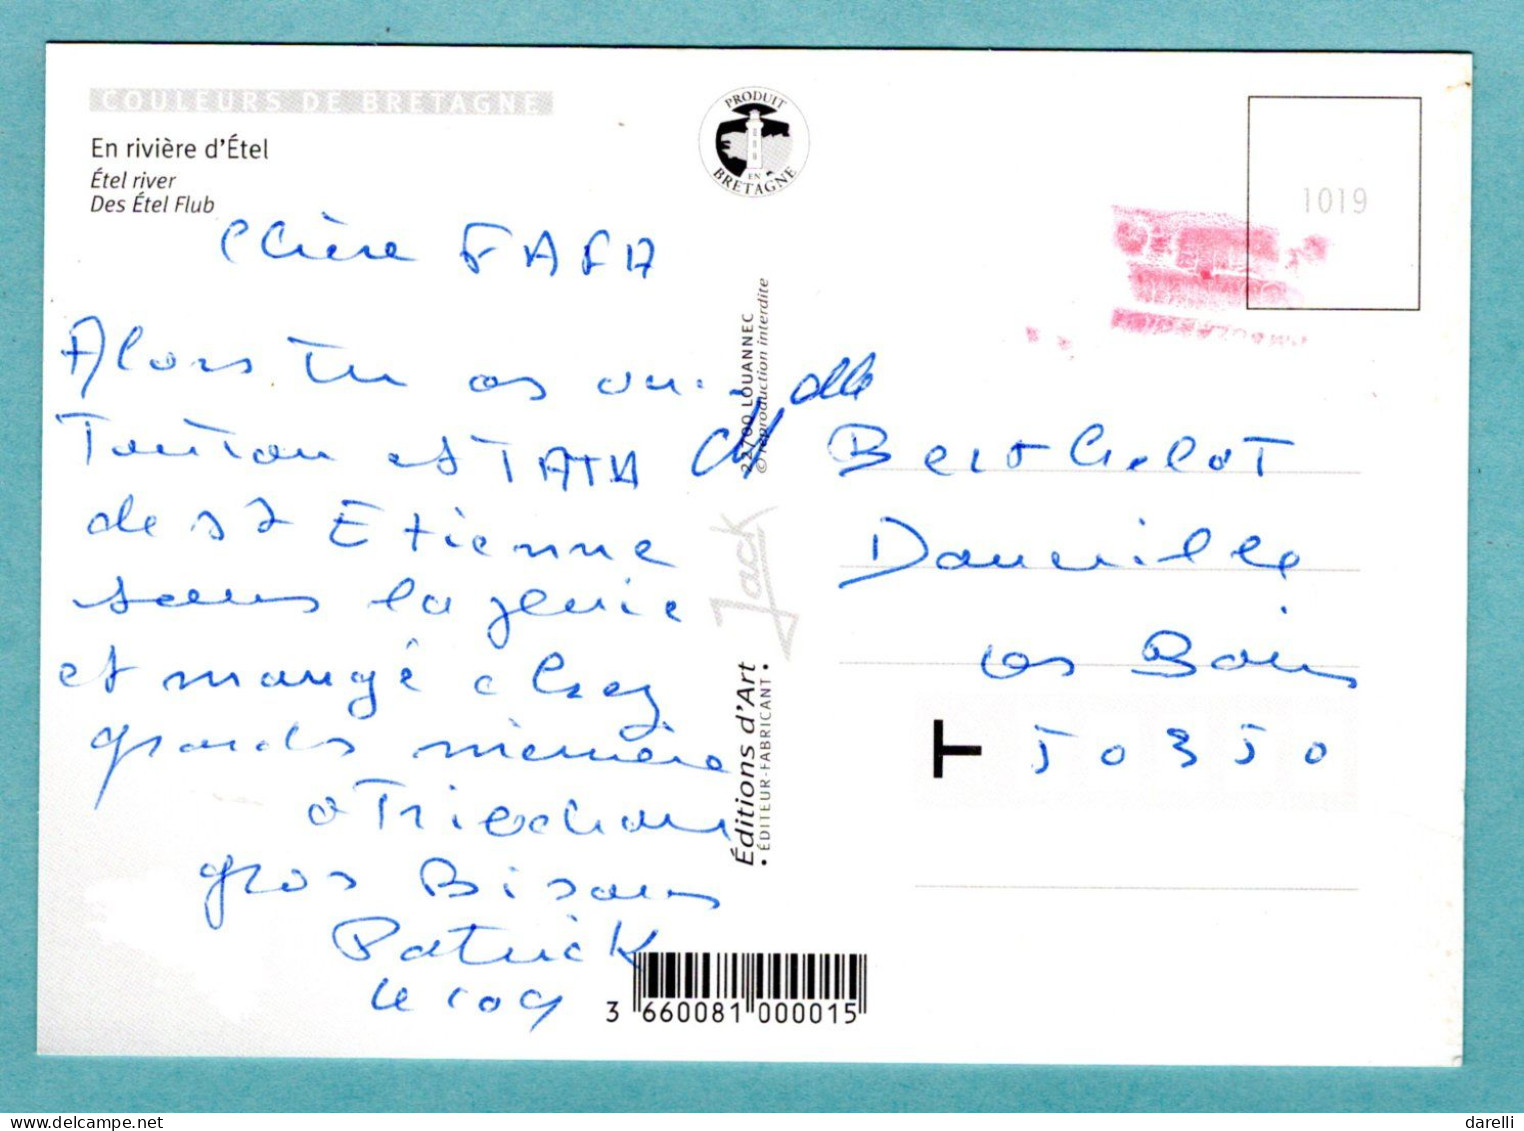 COULEURS DE BRETAGNE
En rivière d'Étel
Étel river
Des Étel Flub
PRODUIT
EN
BRETAGNE
1019
Chère FAFA
Alors tu as vu
Tonton et TATA
de st Etienne
sans la genie
et mangé chez
grands mémère
a Triechan
gros Bisous
Patrick
le coq
22700 LOUANNEC
© reproduction interdite
Jack
Éditions d'Art
• ÉDITEUR-FABRICANT •
Melle
Berthelot
Donville
les Bains
T 50350
3 660081 000015
darelli